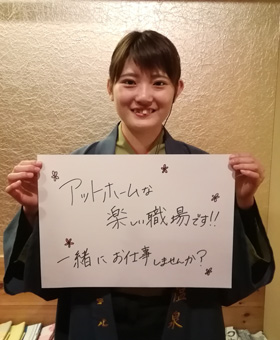 アットホームな
楽しい職場です!!
一緒にお仕事しませんか?
泉